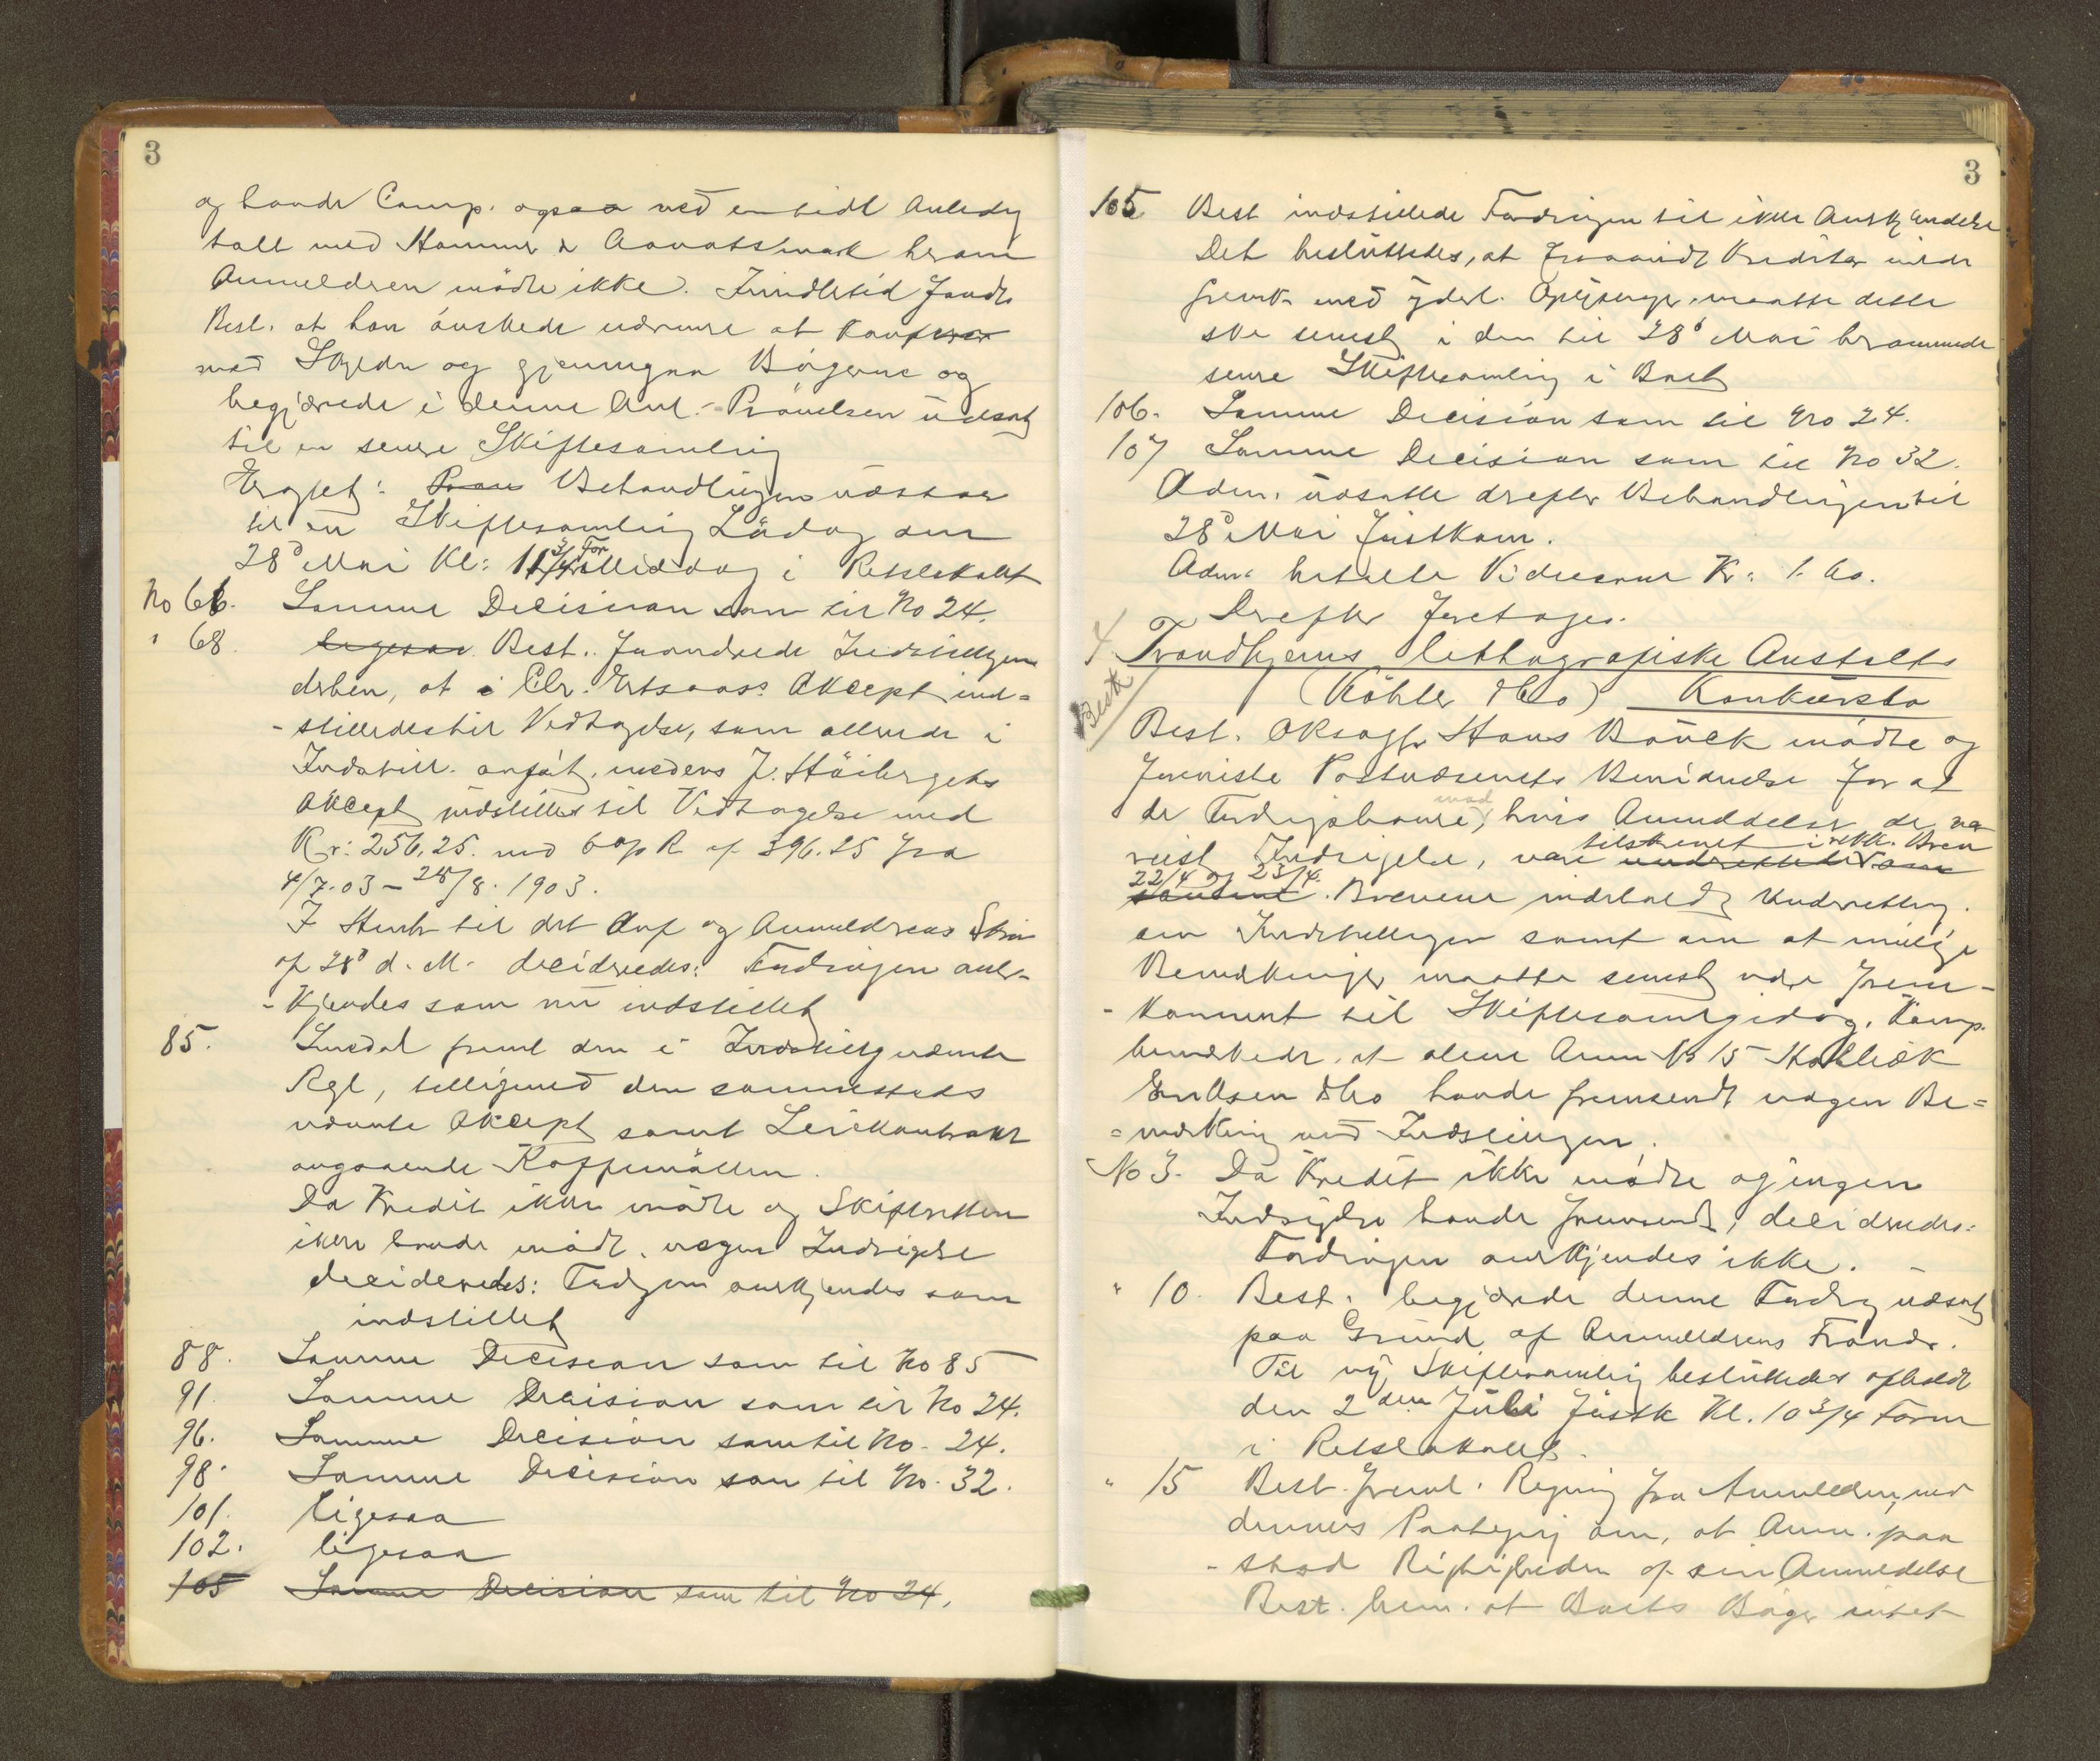 3
og havde Comp. ogsaa ved en tidl Anledg
talt med Hammer & Aavatsmark herom
Anmelderen mødte ikke. Imidlertid fandt
Best. at han ønskede nærmere at konferere
med Skyldn og gjennemgaa Bøgerne og
begjærede i denne Anl. Prøvelsen udsat
til en senere Skiftesamling
Eragtet: Behandlingen udstaar
til en Skiftesamling Lørdag den
28d Mai Kl: 11 3/4 Formiddag i Retslokalet
No 66. Samme Decision som til No 24.
" 68. ligesaa Best. forandrede Indstillingen
derhen, at Chr. Ertsaas's Akcept ind=
-stilledes til Vedtagelse, som allerede i
Indstill. anført, medens J. Høibergets
Akcept indstilles til Vedtagelse med
Kr: 256,25. med 6 % R af 396.25 fra
4/7.03 - 28/8. 1903.
I Henh til det Anf og Anmelderens Skriv
af 28d d. M. decideredes: Fordringen aner-
-kjendes som nu indstillet
85. freml den i Indstilling nævnte
Rgl, tilligemed den sammesteds
nævnte Akcept samt Leiekontrakt
angaaende Kaffemøllen.
Da Kredit ikke mødte og Skifteretten
ikke havde modt. nogen Indsigelse
decideredes: Fordrgen anerkjendes som
indstillet
88. Samme Decision som til No 85
91. Samme Decision som til No 24.
96. Samme Decision som til No. 24.
98. Samme Decision som til No. 32.
101. ligesaa
102. ligesaa
105 Samme Decision som til No 24.
3
105 Best indstillede Fordringen til ikke Anerkjendelse
Det besluttedes, at forsaavidt Kreditor vilde
fremk med yderl. Oplysninger, maatte dette
ske senest i den til 28d Mai berammede
senere Skiftesamling i Boet
106. Samme Decision som til No 24.
107 Samme Decision som til No 32.
Adm. udsatte derefter Behandlingen til
28d Mai førstkom.
Adm. betalte Vidnerne Kr: 1.60.
Derefter foretoges.
4. Trondhjems lithografiske Anstalts
(Köhler & Co) Konkursbo
Best
Best. Oksagfr Hans Bauck mødte og
foreviste Postvæsenets Bevidnelse for at
de Fordringshavere, mod hvis Anmeldelser de var
reist Indsigelse, vare tilskrevet i rekk. Brev
22/4 og 23/4. Brevene indeholdt Underretning
om Indstillingen samt om at mulige
Bemærkninger maatte senest være frem-
-kommet til Skiftesamlgidag. Komp.
bemærkede, at alene Anm No 15
& Co havde fremsendt nogen Be=
=mærkning ved Indstillingen.
No 3. Da Kredit ikke mødte og ingen
Indsigelse havde fremsendt, decideredes:
Fordringen anerkjendes ikke.
" 10. Best. begjærede denne Fordrg udsat
paa Grund af Anmelderens Fravær.
Til ny Skiftesamling besluttedes afholdt
den 2den Juli førstk Kl. 10 3/4 Form
i Retslokalet.
" 15 Best. freml. Regning fra Anmelderen, med
dennes Paategng om, at Anm. paa
-stod Rigtigheden af sin Anmeldelse
Best. bem. at Boets Bøger intet